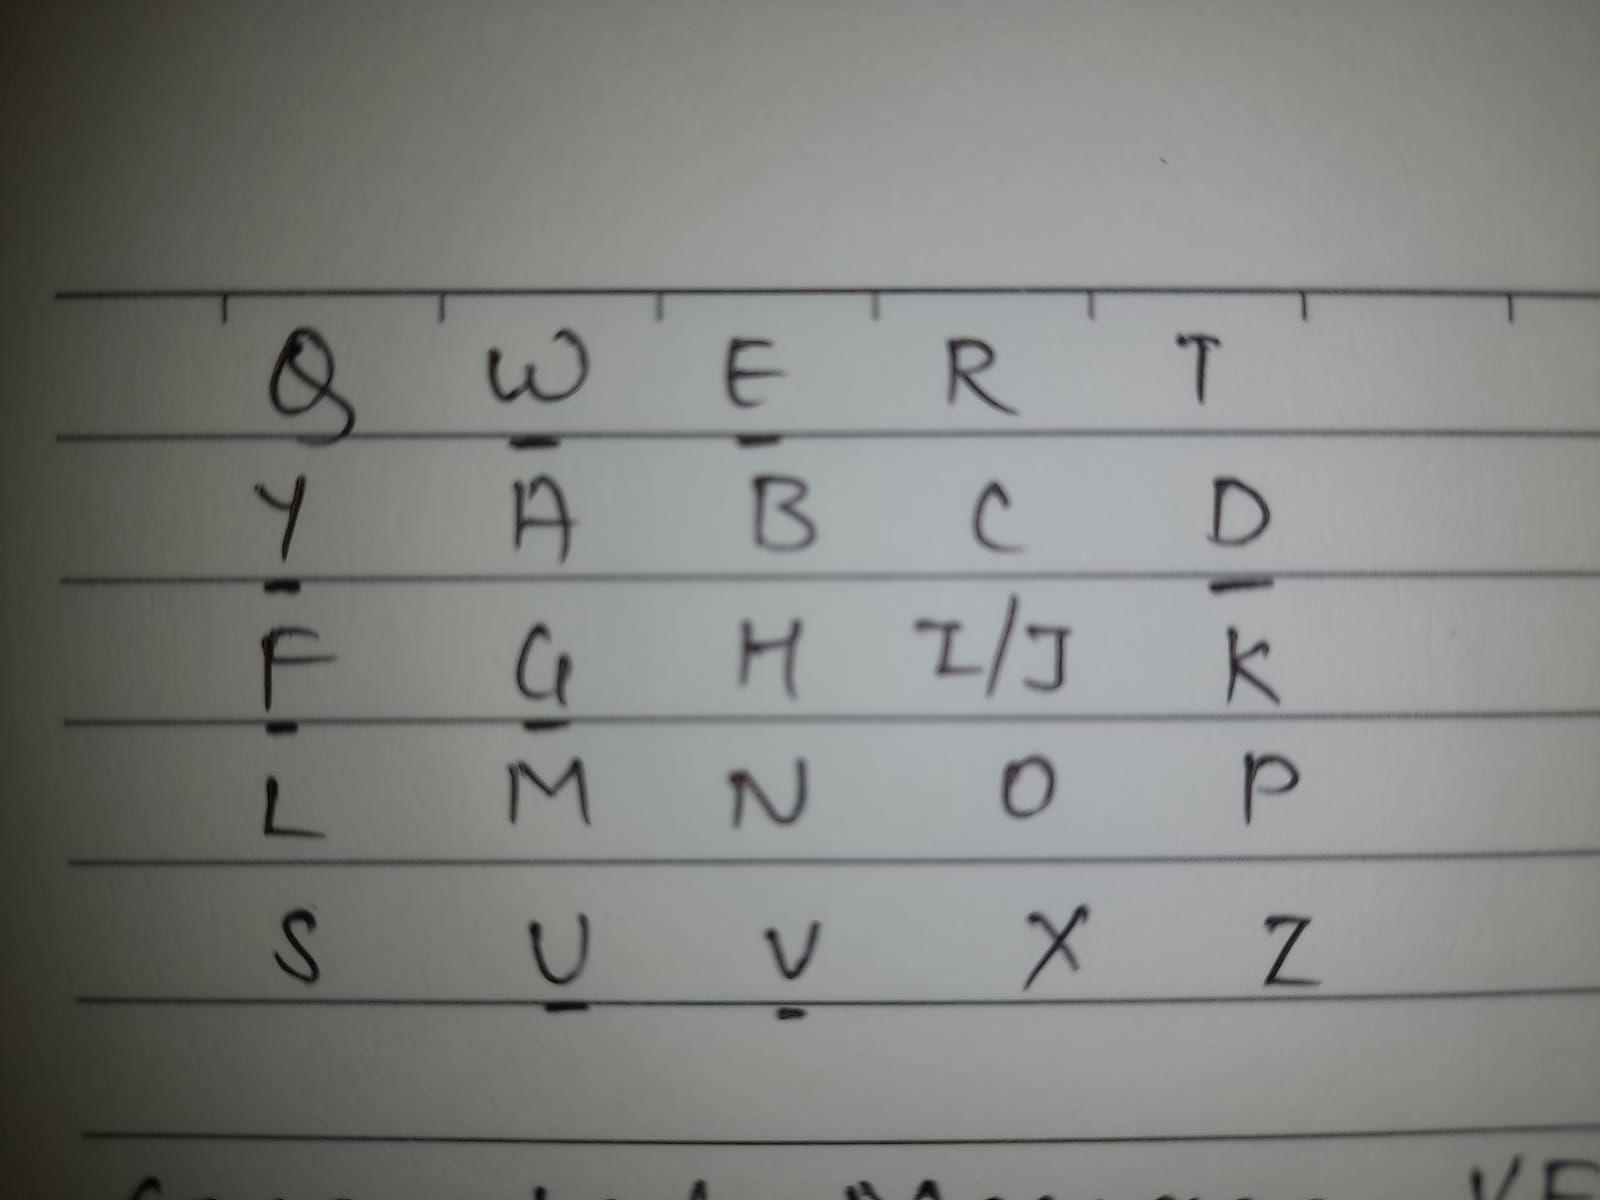 Q W E R T
Y A B C D
F G H I/J K
L M N O P
S U V X Z